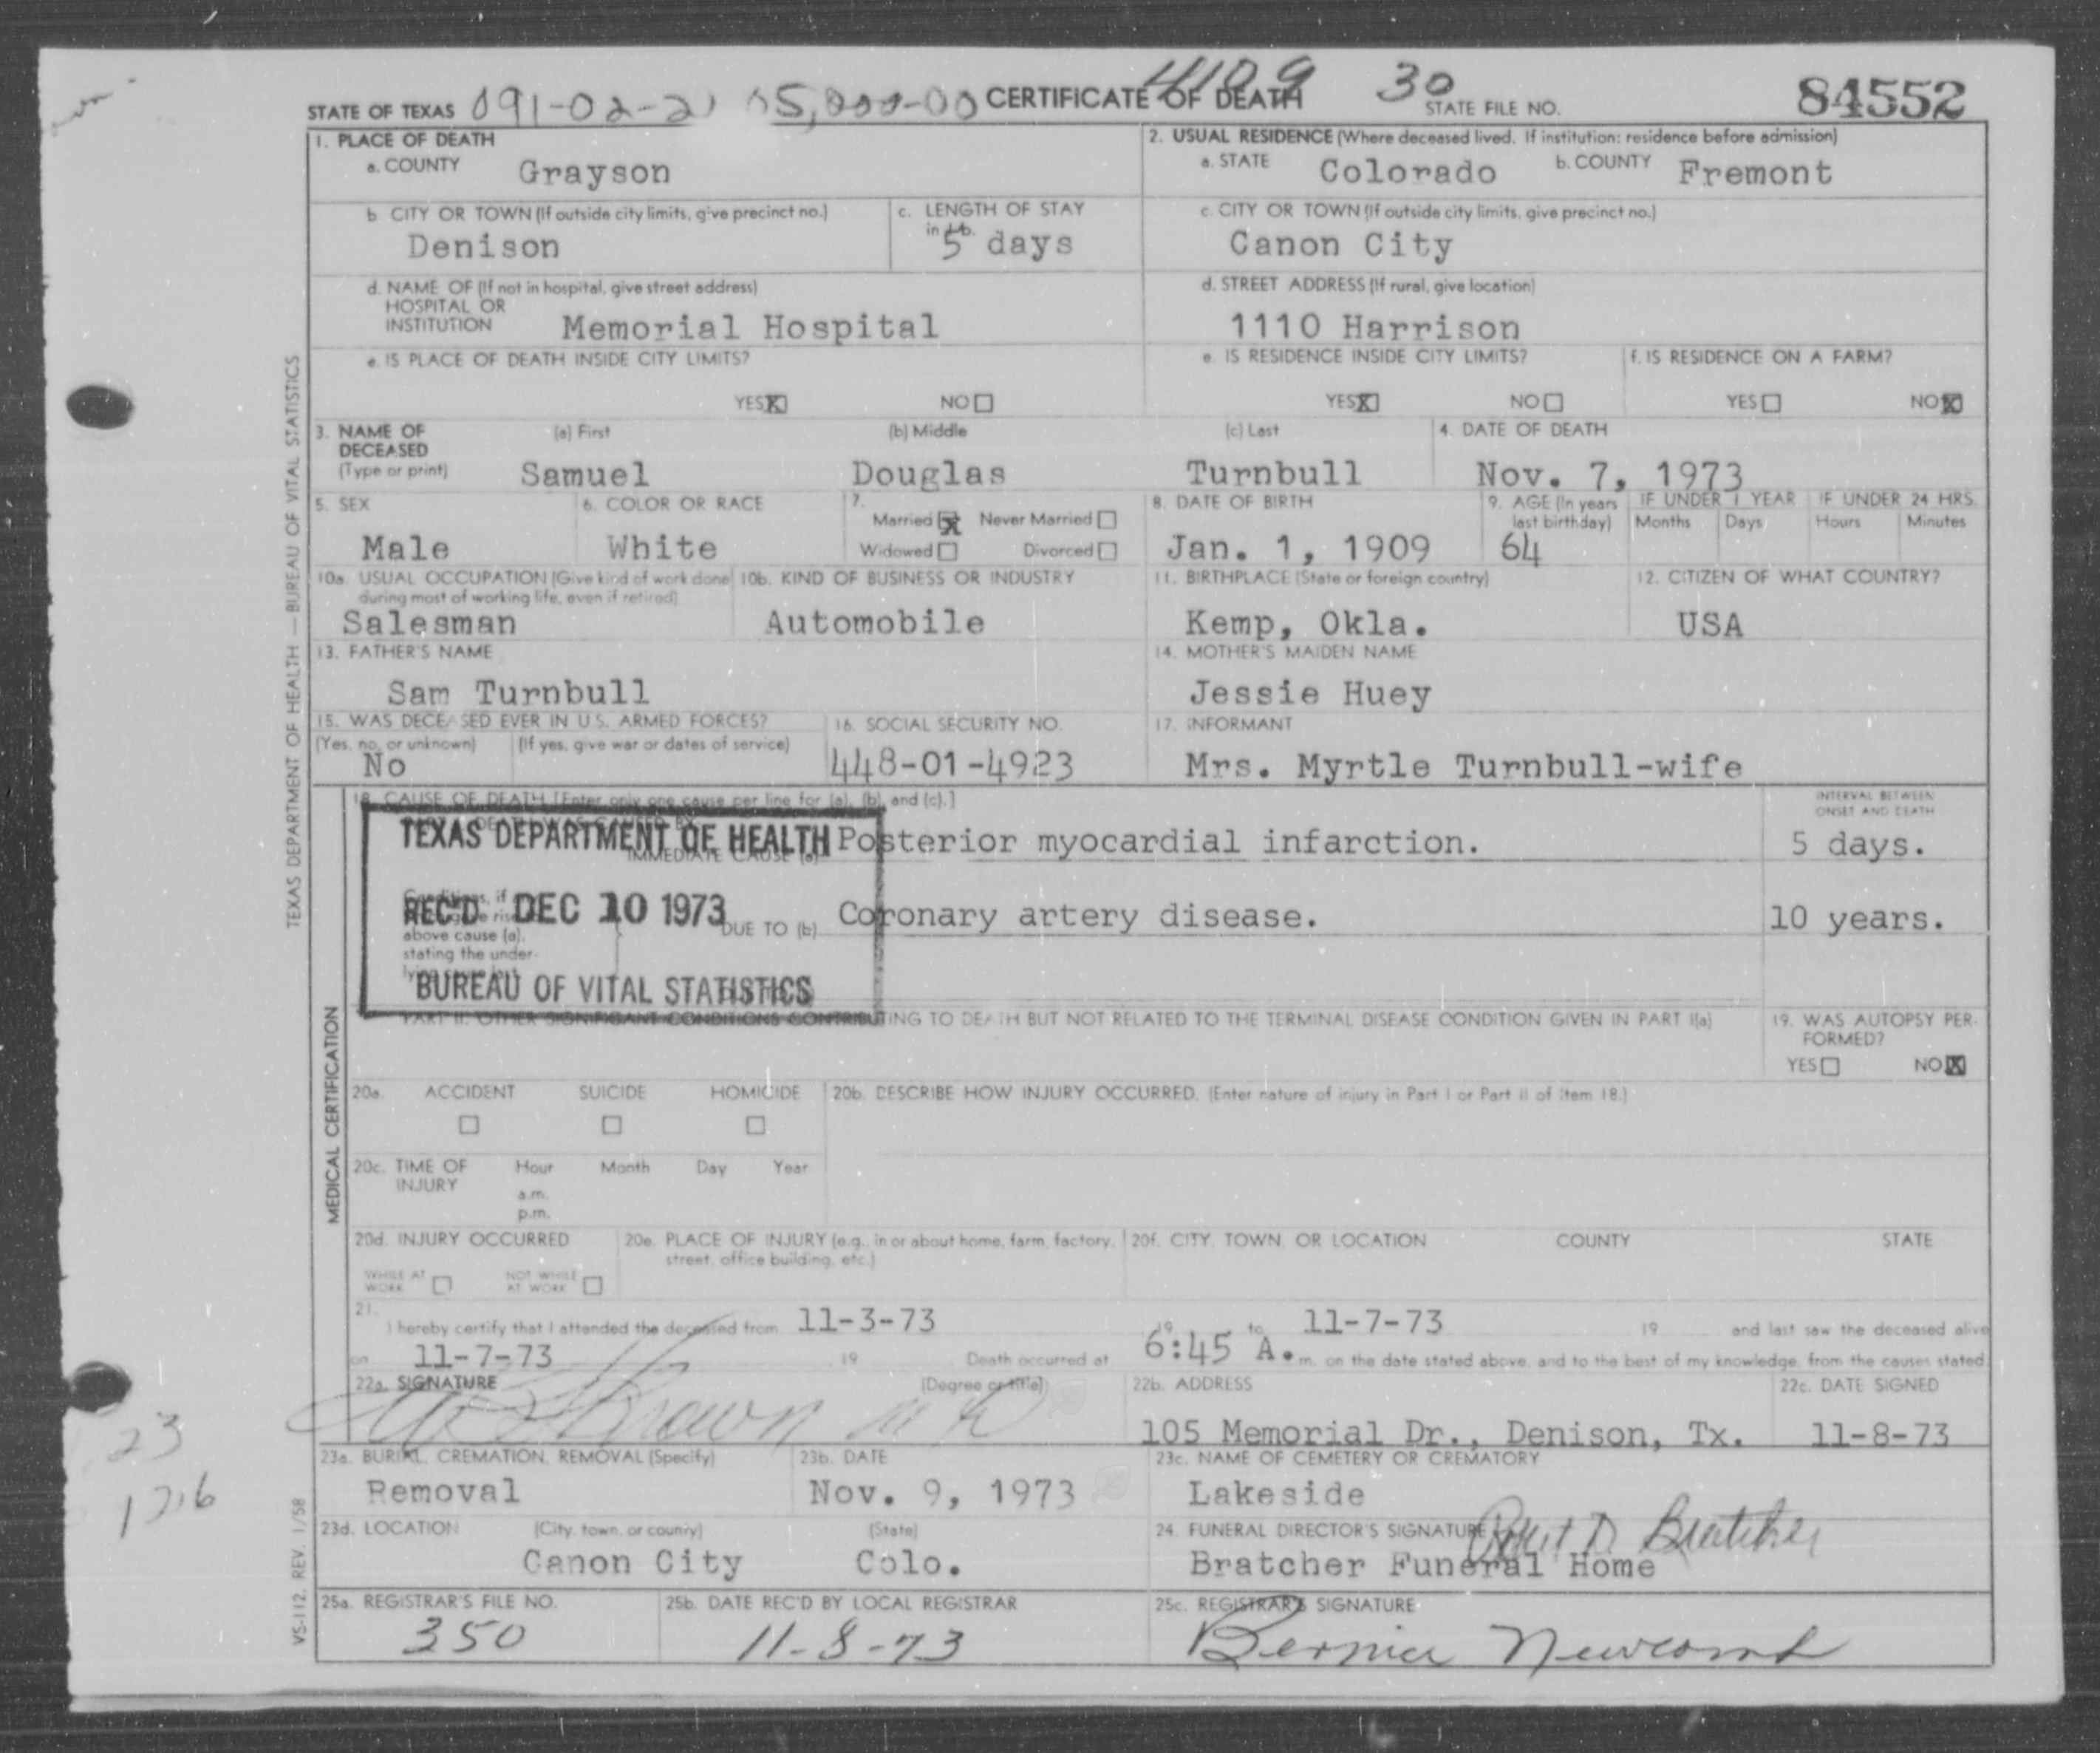 4109 30
STATE OF TEXAS 091-02-2 05,000-00 CERTIFICATE OF DEATH STATE FILE NO. 84552
1. PLACE OF DEATH
a. COUNTY Grayson
b. CITY OR TOWN (If outside city limits, give precinct no.) c. LENGTH OF STAY in 1b.
Denison 5 days
d. NAME OF (If not in hospital, give street address)
HOSPITAL OR
INSTITUTION Memorial Hospital
e. IS PLACE OF DEATH INSIDE CITY LIMITS?
YES X NO
2. USUAL RESIDENCE (Where deceased lived. If institution: residence before admission)
a. STATE Colorado b. COUNTY Fremont
c. CITY OR TOWN (If outside city limits, give precinct no.)
Canon City
d. STREET ADDRESS (If rural, give location)
1110 Harrison
e. IS RESIDENCE INSIDE CITY LIMITS? f. IS RESIDENCE ON A FARM?
YES X NO YES NO X
3. NAME OF DECEASED (Type or print) (a) First (b) Middle (c) Last 4. DATE OF DEATH
Samuel Douglas Turnbull Nov. 7, 1973
5. SEX 6. COLOR OR RACE 7. 8. DATE OF BIRTH 9. AGE (In years last birthday) IF UNDER 1 YEAR IF UNDER 24 HRS.
Married X Never Married Months Days Hours Minutes
Widowed Divorced
Male White Jan. 1, 1909 64
10a. USUAL OCCUPATION (Give kind of work done during most of working life, even if retired) 10b. KIND OF BUSINESS OR INDUSTRY 11. BIRTHPLACE (State or foreign country) 12. CITIZEN OF WHAT COUNTRY?
Salesman Automobile Kemp, Okla. USA
13. FATHER'S NAME 14. MOTHER'S MAIDEN NAME
Sam Turnbull Jessie Huey
15. WAS DECEASED EVER IN U.S. ARMED FORCES? 16. SOCIAL SECURITY NO. 17. INFORMANT
(Yes, no, or unknown) (If yes, give war or dates of service)
No 448-01-4923 Mrs. Myrtle Turnbull-wife
18. CAUSE OF DEATH [Enter only one cause per line for (a), (b), and (c).] INTERVAL BETWEEN ONSET AND DEATH
TEXAS DEPARTMENT OF HEALTH
IMMEDIATE CAUSE (a) Posterior myocardial infarction. 5 days.
REC'D DEC 10 1973
above cause (a),
stating the under-
DUE TO (b) Coronary artery disease. 10 years.
BUREAU OF VITAL STATISTICS
PART II. OTHER SIGNIFICANT CONDITIONS CONTRIBUTING TO DEATH BUT NOT RELATED TO THE TERMINAL DISEASE CONDITION GIVEN IN PART I(a) 19. WAS AUTOPSY PERFORMED?
YES NO X
20a. ACCIDENT SUICIDE HOMICIDE 20b. DESCRIBE HOW INJURY OCCURRED. (Enter nature of injury in Part I or Part II of Item 18.)
20c. TIME OF INJURY Hour Month Day Year
a.m.
p.m.
20d. INJURY OCCURRED 20e. PLACE OF INJURY (e.g., in or about home, farm, factory, street, office building, etc.) 20f. CITY, TOWN, OR LOCATION COUNTY STATE
WHILE AT WORK NOT WHILE AT WORK
21. I hereby certify that I attended the deceased from 11-3-73 19 to 11-7-73 19 and last saw the deceased alive
on 11-7-73 19 Death occurred at 6:45 A.m. on the date stated above, and to the best of my knowledge, from the causes stated.
22a. SIGNATURE (Degree or title) 22b. ADDRESS 22c. DATE SIGNED
Brown MD 105 Memorial Dr., Denison, Tx. 11-8-73
23a. BURIAL, CREMATION, REMOVAL (Specify) 23b. DATE 23c. NAME OF CEMETERY OR CREMATORY
Removal Nov. 9, 1973 Lakeside
23d. LOCATION (City, town, or county) (State) 24. FUNERAL DIRECTOR'S SIGNATURE
D Bratcher
Canon City Colo. Bratcher Funeral Home
25a. REGISTRAR'S FILE NO. 25b. DATE REC'D BY LOCAL REGISTRAR 25c. REGISTRAR'S SIGNATURE
350 11-8-73 Bernice Newcomb
TEXAS DEPARTMENT OF HEALTH — BUREAU OF VITAL STATISTICS
MEDICAL CERTIFICATION
VS-112, REV. 1/58
23